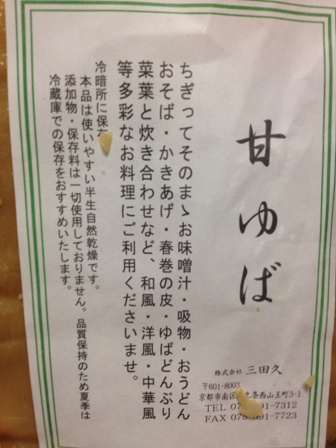 甘ゆば
ちぎってそのまゝお味噌汁・吸物・おうどん
おそば・かきあげ・春巻の皮・ゆばどんぶり
菜葉と炊き合わせなど、和風・洋風・中華風
等多彩なお料理にご利用くださいませ。
冷暗所に保存
本品は使いやすい半生自然乾燥です。
添加物・保存料は一切使用しておりません。品質保持のため夏季は
冷蔵庫での保存をおすすめいたします。
株式会社 三田久
〒601-8003
京都市南区 条西山王町3-1
TEL 07 91-7312
FAX 075 91-7723